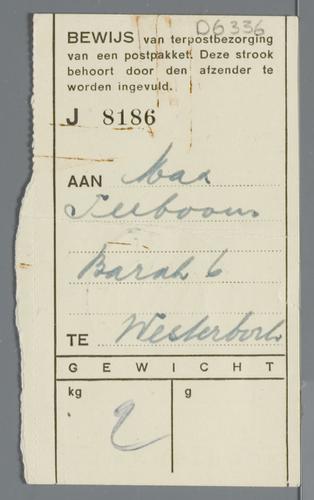 D6336
BEWIJS van terpostbezorging
van een postpakket. Deze strook
behoort door den afzender te
worden ingevuld.
J 8186
AAN Max
Teeboom
Barak 6
TE Westerbork
GEWICHT
kg g
2